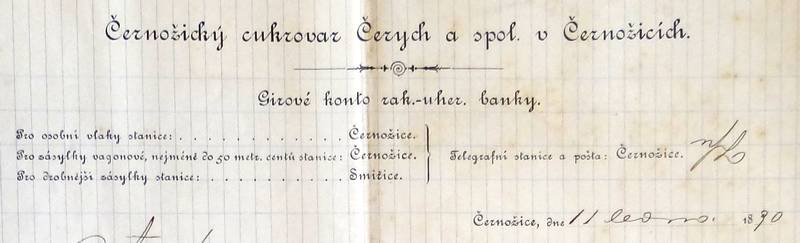 Černožický cukrovar Čerych a spol. v Černožicích.
Girové konto rak.-uher. banky.
Pro osobní vlaky stanice: . . . . . . . . . . . Černožice.
Pro zásylky vagonové, nejméně do 50 metr. centů stanice: Černožice.
Pro drobnější zásylky stanice: . . . . . . . . . Smiřice.
Telegrafní stanice a pošta: Černožice.
Černožice, dne 11 ledna. 1890